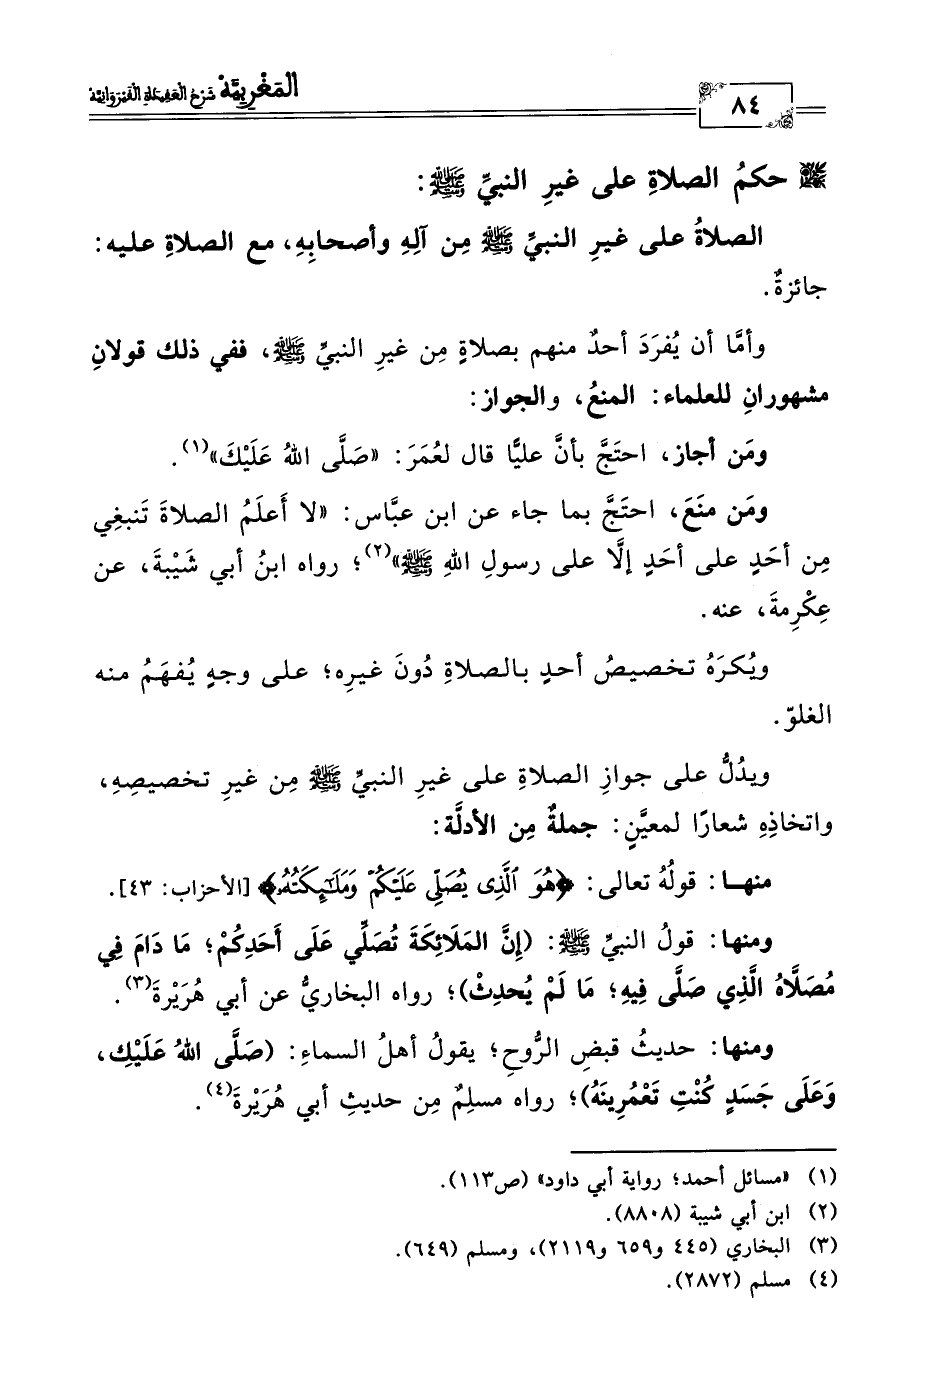 المغربية شرح العقيدة القيروانية
٨٤
حكمُ الصلاةِ على غيرِ النبيِّ ﷺ:
الصلاةُ على غيرِ النبيِّ ﷺ مِن آلِهِ وأصحابِهِ، مع الصلاةِ عليه:
جائزةٌ.
وأمَّا أن يُفرَدَ أحدٌ منهم بصلاةٍ مِن غيرِ النبيِّ ﷺ، ففي ذلك قولانِ
مشهورانِ للعلماء: المنعُ، والجواز:
ومَن أجاز، احتَجَّ بأنَّ عليًّا قال لعُمَرَ: «صَلَّى اللهُ عَلَيْكَ»(١).
ومَن منَعَ، احتَجَّ بما جاء عن ابن عبَّاس: «لا أَعلَمُ الصلاةَ تَنبغِي
مِن أحَدٍ على أحَدٍ إلَّا على رسولِ اللهِ ﷺ»(٢)؛ رواه ابنُ أبي شَيْبةَ، عن
عِكْرِمةَ، عنه.
ويُكرَهُ تخصيصُ أحدٍ بالصلاةِ دُونَ غيرِه؛ على وجهٍ يُفهَمُ منه
الغلوّ.
ويدُلُّ على جوازِ الصلاةِ على غيرِ النبيِّ ﷺ مِن غيرِ تخصيصِهِ،
واتخاذِهِ شعارًا لمعيَّنٍ: جملةٌ مِن الأدلَّة:
منها: قولُهُ تعالى: ﴿هُوَ ٱلَّذِى يُصَلِّى عَلَيْكُمْ وَمَلَٰٓئِكَتُهُۥ﴾ [الأحزاب: ٤٣].
ومنها: قولُ النبيِّ ﷺ: (إِنَّ المَلَائِكَةَ تُصَلِّي عَلَى أَحَدِكُمْ؛ مَا دَامَ فِي
مُصَلَّاهُ الَّذِي صَلَّى فِيهِ؛ مَا لَمْ يُحدِثْ)؛ رواه البخاريُّ عن أبي هُرَيْرةَ(٣).
ومنها: حديثُ قبضِ الرُّوحِ؛ يقولُ أهلُ السماءِ: (صَلَّى اللهُ عَلَيْكِ،
وَعَلَى جَسَدٍ كُنْتِ تَعْمُرِينَهُ)؛ رواه مسلِمٌ مِن حديثِ أبي هُرَيْرةَ(٤).
(١) «مسائل أحمد؛ رواية أبي داود» (ص١١٣).
(٢) ابن أبي شيبة (٨٨٠٨).
(٣) البخاري (٤٤٥ و٦٥٩ و٢١١٩)، ومسلم (٦٤٩).
(٤) مسلم (٢٨٧٢).